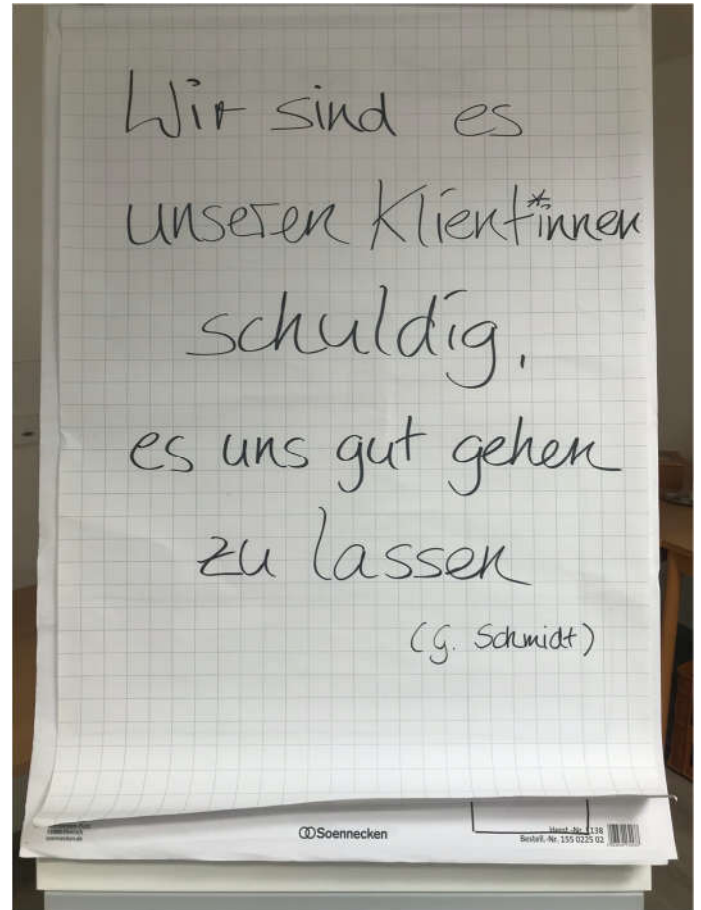 Wir sind es
unseren Klient*innen
schuldig,
es uns gut gehen
zu lassen
(G. Schmidt)
Soennecken
Bestell.-Nr. 155 0225 02